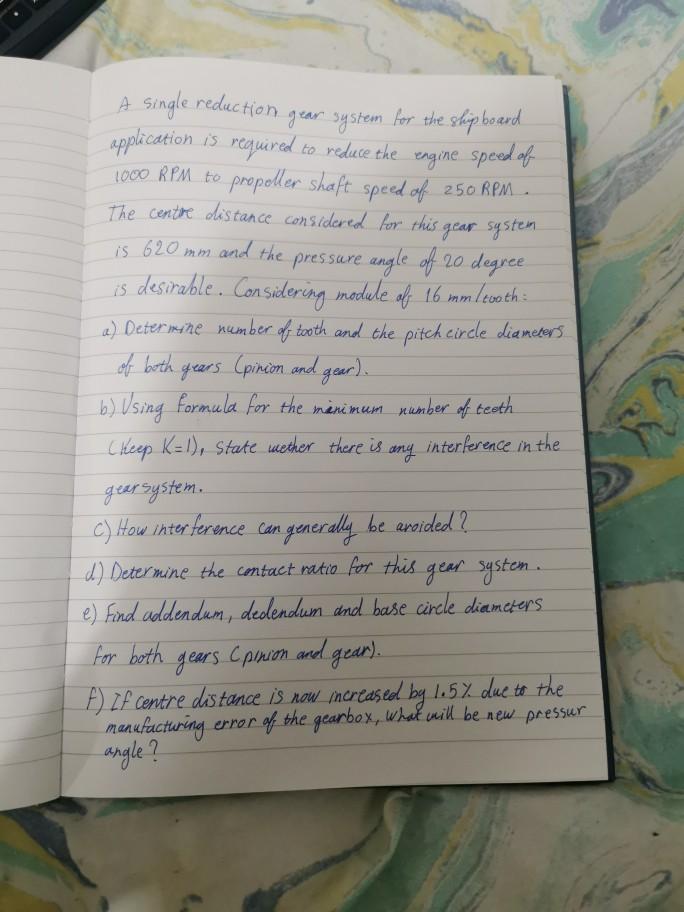 A single reduction gear system for the shipboard
application is required to reduce the engine speed of
1000 RPM to propoller shaft speed of 250 RPM.
The centre distance considered for this gear system
is 620 mm and the pressure angle of 20 degree
is desirable. Considering module of 16 mm/tooth:
a) Determine number of tooth and the pitch circle diameters
of both gears (pinion and gear).
b) Using formula for the minimum number of teeth
(Keep K=1), State wether there is any interference in the
gear system.
c) How interference can generally be avoided?
d) Determine the contact ratio for this gear system.
e) Find addendum, dedendum and base circle diameters
for both gears (pinion and gear).
f) If centre distance is now increased by 1.5% due to the
manufacturing error of the gearbox, what will be new pressur
angle?